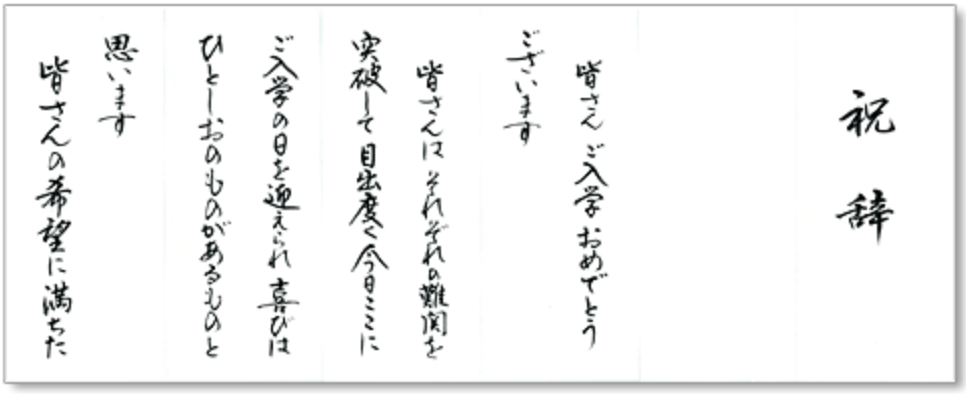 祝辞
皆さん ご入学おめでとう
ございます
皆さんは それぞれの難関を
突破して 目出度く今日ここに
ご入学の日を迎えられ 喜びは
ひとしおのものがあるものと
思います
皆さんの希望に満ちた